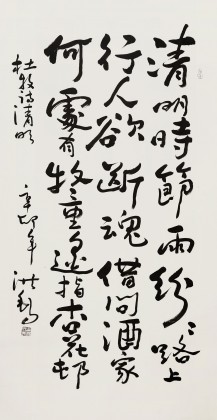 清明時節雨紛々路上
行人欲斷魂借問酒家
何處有牧童遥指杏花邨
杜牧詩清明
辛卯年